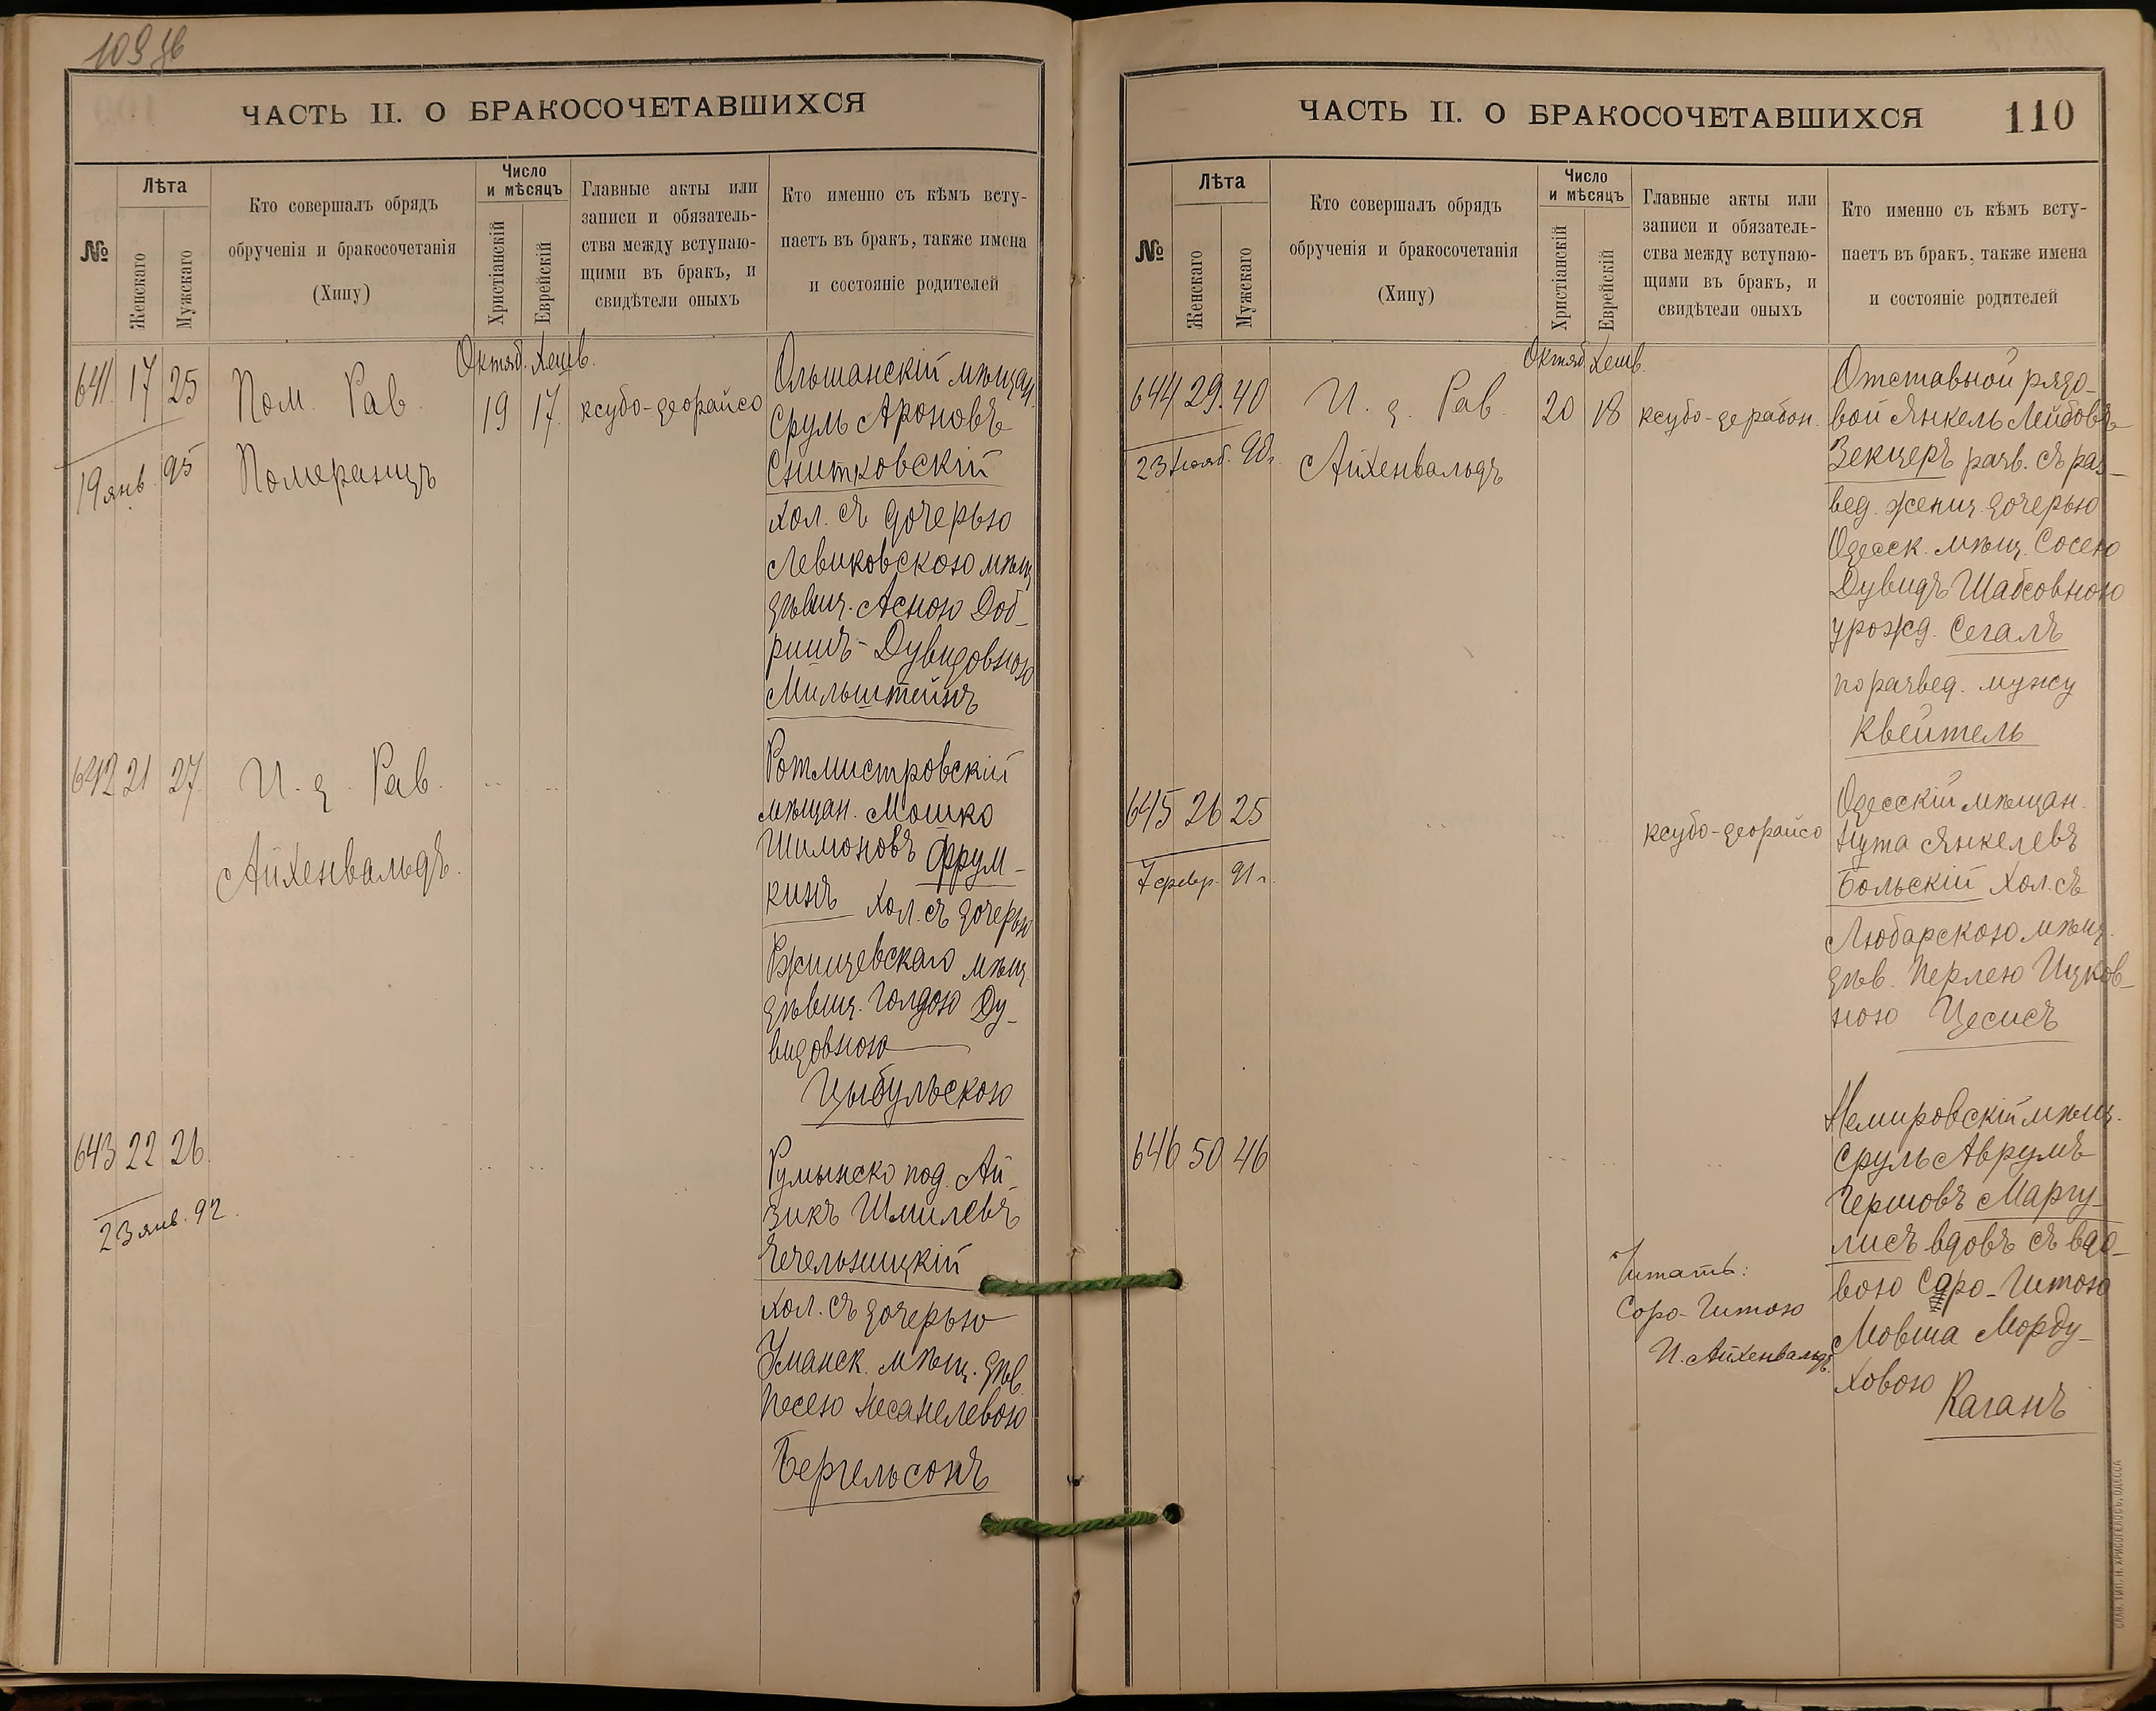 ЧАСТЬ II. О БРАКОСОЧЕТАВШИХСЯ
№
Лѣта
Женскаго
Мужскаго
Кто совершалъ обрядъ
обрученія и бракосочетанія
(Хипу)
Число
и мѣсяцъ
Христіанскій
Еврейскій
Главные акты или
записи и обязатель-
ства между вступаю-
щими въ бракъ, и
свидѣтели оныхъ
Кто именно съ кѣмъ всту-
паетъ въ бракъ, также имена
и состояніе родителей
Октяб. Хешв.
641. 17 25
19 янв. 95
Пом. Рав.
Померанцъ
19 17.
ксубо-деорайсо
Ольшанскій мѣщан.
Сруль Ароновъ
Снитковскій
хол. съ дочерью
Левиковскою мѣщ
дѣвиц. Асною Доб-
ришъ-Дувидовною
Мильштейнъ
642 21 27.
И. д. Рав.
Айхенвальдъ.
Ротмистровскій
мѣщан. Мошко
Шимоновъ Фрум-
кинъ хол. съ дочерью
Ржищевскаго мѣщ
дѣвиц. Голдою Ду-
видовною
Цыбульскою
643 22 26
23 янв. 92.
Румынско под. Ай-
зикъ Шмилевъ
Чечельницкій
хол. съ дочерью
Уманск. мѣщ. дѣв.
Песею Несанелевою
Бергельсонъ
ЧАСТЬ II. О БРАКОСОЧЕТАВШИХСЯ 110
№
Лѣта
Женскаго
Мужскаго
Кто совершалъ обрядъ
обрученія и бракосочетанія
(Хипу)
Число
и мѣсяцъ
Христіанскій
Еврейскій
Главные акты или
записи и обязатель-
ства между вступаю-
щими въ бракъ, и
свидѣтели оныхъ
Кто именно съ кѣмъ всту-
паетъ въ бракъ, также имена
и состояніе родителей
Октяб. Хешв.
644 29. 40
23 Нояб. 90 г.
И. д. Рав.
Айхенвальдъ
20 18
ксубо-дерабон.
Отставной рядо-
вой Янкель Лейбовъ
Зекцеръ разв. съ раз-
вед. женщ. дочерью
Одесск. мѣщ. Сосею
Дувидъ Шабсовною
урожд. Сегалъ
по развед. мужу
Квейтель
645 26 25
7 февр. 91 г.
ксубо-деорайсо
Одесскій мѣщан.
Нута Янкелевъ
Больскій хол. съ
Любарскою мѣщ.
дѣв. Перлею Ицков-
ною Цесисъ
646 50 46
Немировскій мѣщ.
Сруль Аврумъ
Гершовъ Маргу-
лисъ вдовъ съ вдо-
вою Саро-Гитою
Мовша Морду-
ховою
Каганъ
Читать:
Соро-Гитою
И. Айхенвальдъ.
СЛАВ. ТИП. Н. ХРИСОГЕЛОСЪ, ОДЕССА